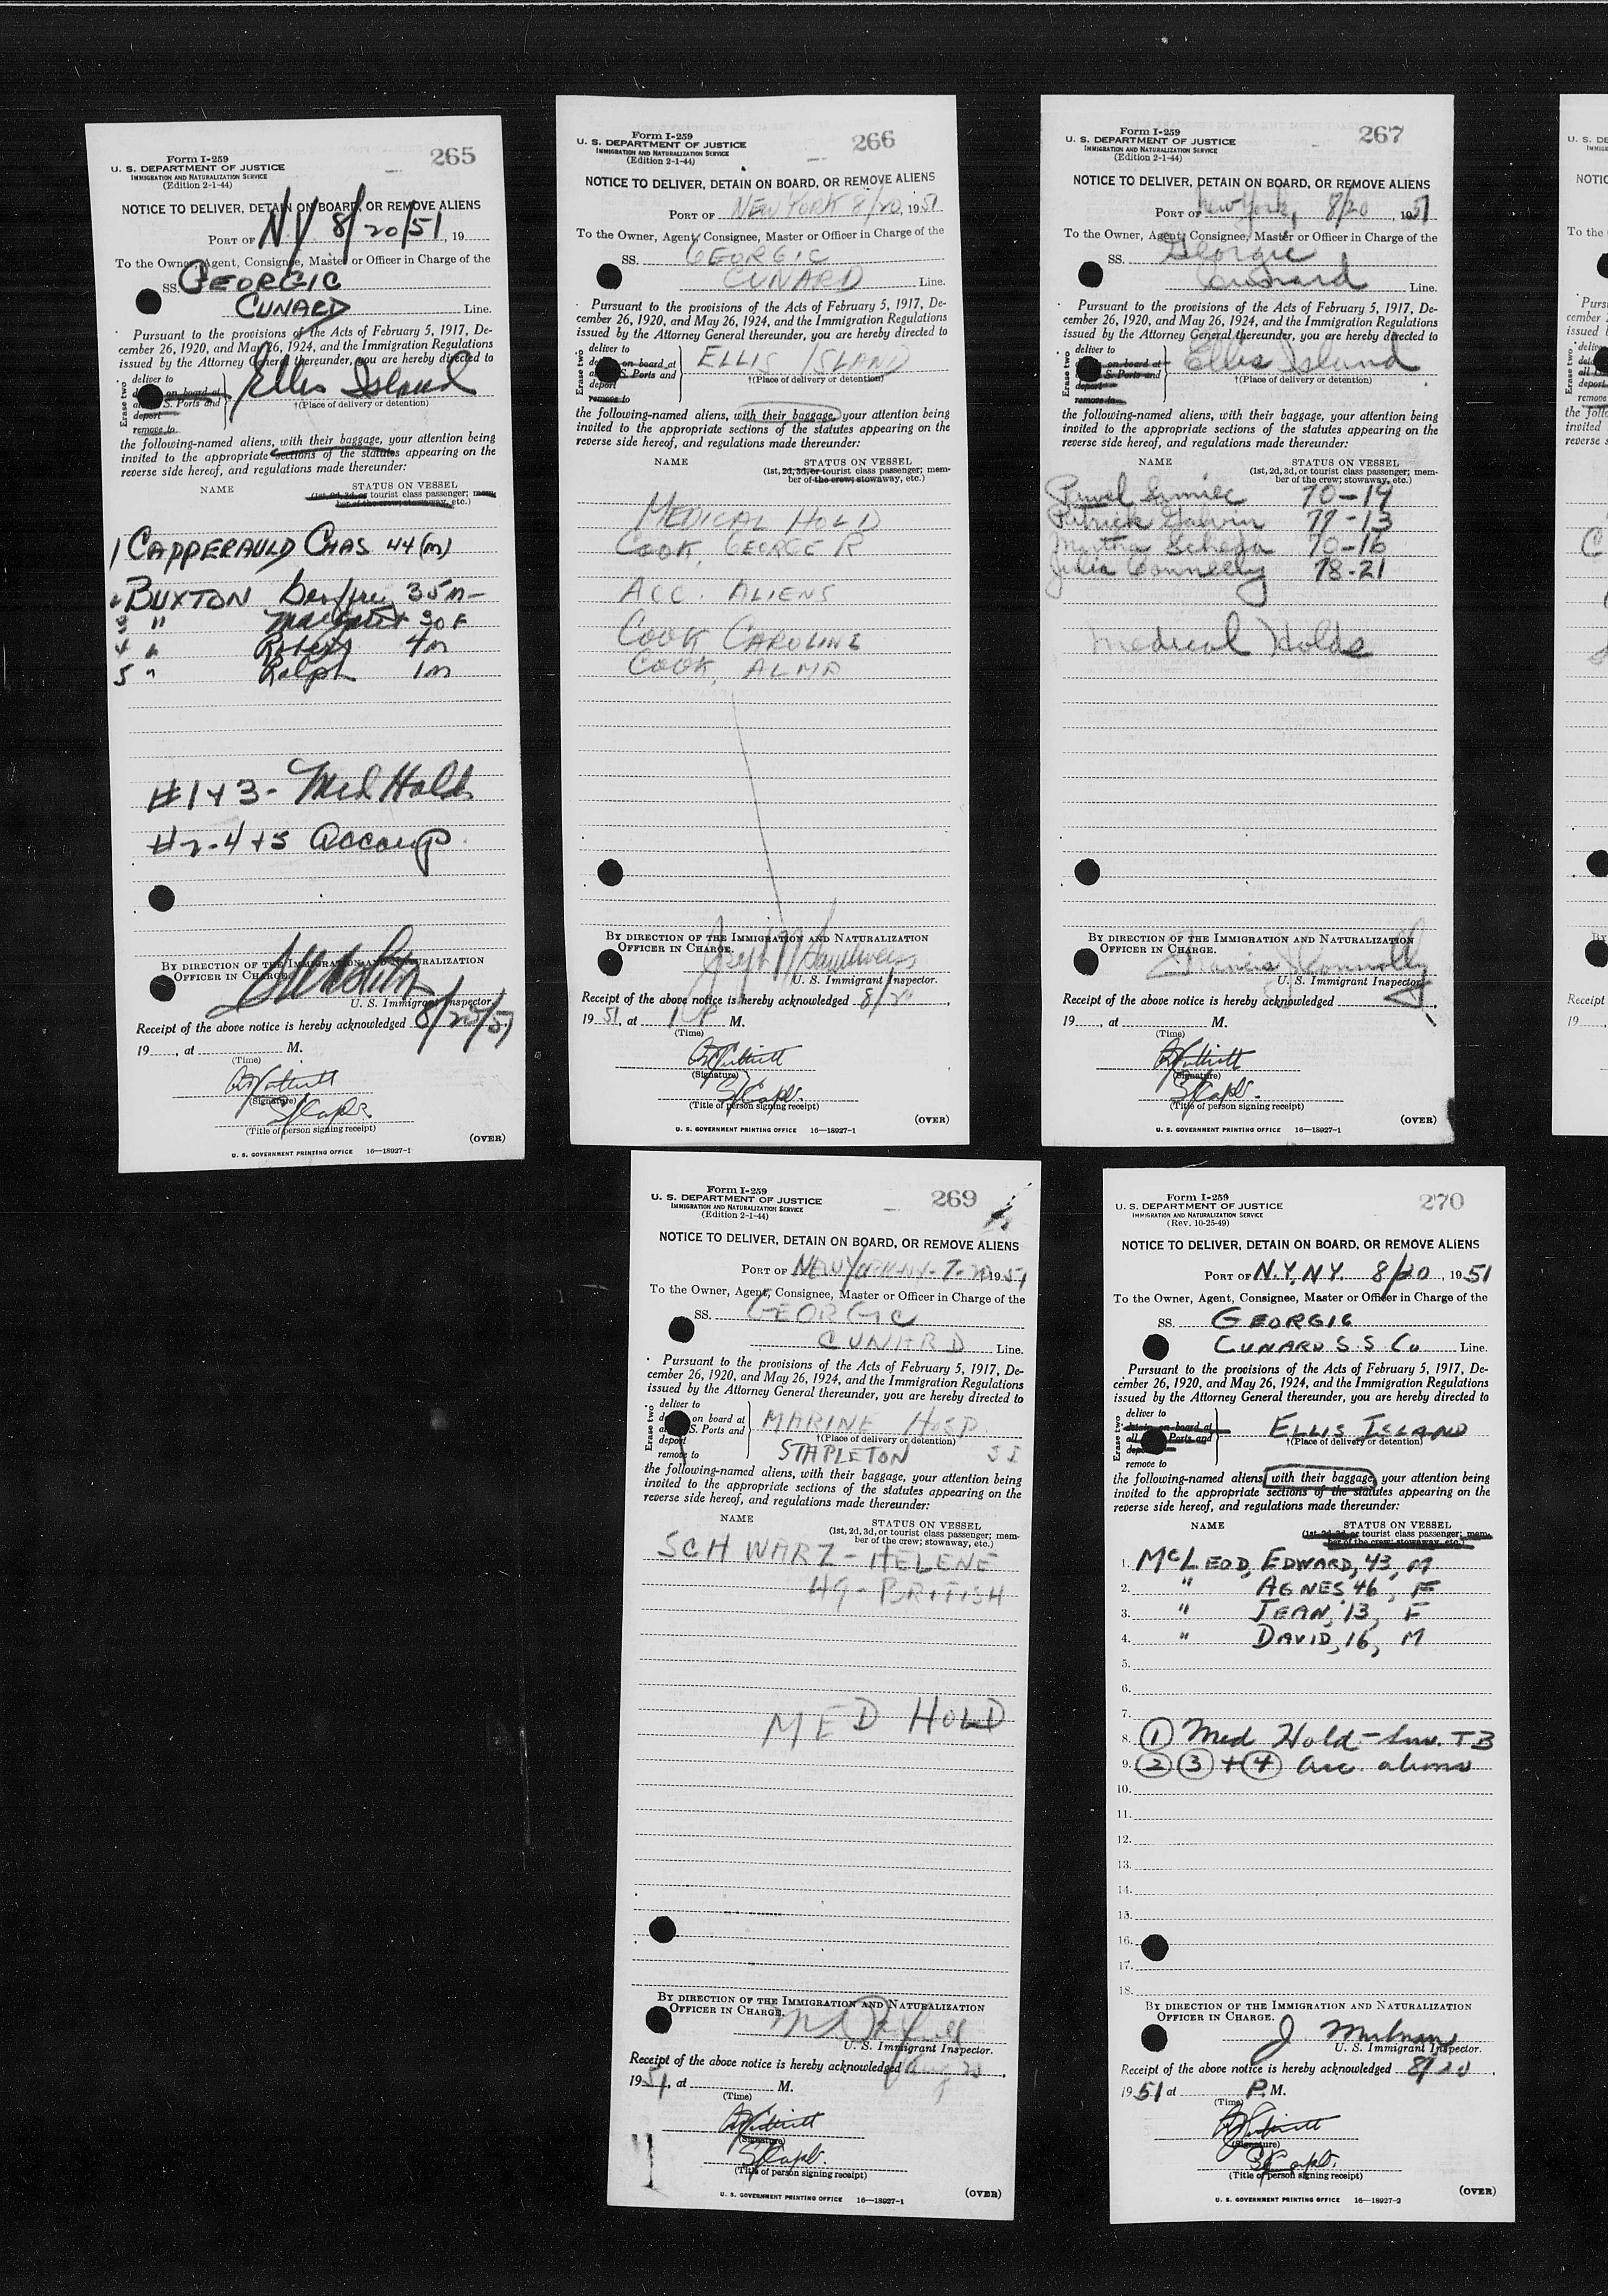 Form I-259
265
U. S. DEPARTMENT OF JUSTICE
IMMIGRATION AND NATURALIZATION SERVICE
(Edition 2-1-44)
NOTICE TO DELIVER, DETAIN ON BOARD, OR REMOVE ALIENS
PORT OF NY 8/20/51, 19
To the Owner, Agent, Consignee, Master or Officer in Charge of the
SS. GEORGIC
CUNARD Line.
Pursuant to the provisions of the Acts of February 5, 1917, De-
cember 26, 1920, and May 26, 1924, and the Immigration Regulations
issued by the Attorney General thereunder, you are hereby directed to
Erase two
deliver to
on board at
S. Ports and
deport
remove to
Ellis Island
†(Place of delivery or detention)
the following-named aliens, with their baggage, your attention being
invited to the appropriate sections of the statutes appearing on the
reverse side hereof, and regulations made thereunder:
NAME STATUS ON VESSEL
(1st, 2d, 3d, or tourist class passenger; mem-
ber of the crew; stowaway, etc.)
1 CAPPERAULD CHAS 44 (m)
2 BUXTON 35 m
3 " Margaret 30 F
4 " Robert 4 m
5 " Ralph 1 m
#1+3- Med Holds
#2-4+5 Accomp.
BY DIRECTION OF THE IMMIGRATION AND NATURALIZATION
OFFICER IN CHARGE.
U. S. Immigrant Inspector.
Receipt of the above notice is hereby acknowledged 8/20/51
19 , at M.
(Time)
(Signature)
(Title of person signing receipt)
(OVER)
U. S. GOVERNMENT PRINTING OFFICE 16—18927-1
Form I-259
266
U. S. DEPARTMENT OF JUSTICE
IMMIGRATION AND NATURALIZATION SERVICE
(Edition 2-1-44)
NOTICE TO DELIVER, DETAIN ON BOARD, OR REMOVE ALIENS
PORT OF NEW YORK 8/20, 1951
To the Owner, Agent, Consignee, Master or Officer in Charge of the
SS. GEORGIC
CUNARD Line.
Pursuant to the provisions of the Acts of February 5, 1917, De-
cember 26, 1920, and May 26, 1924, and the Immigration Regulations
issued by the Attorney General thereunder, you are hereby directed to
Erase two
deliver to
on board at
S. Ports and
deport
remove to
ELLIS ISLAND
†(Place of delivery or detention)
the following-named aliens, with their baggage, your attention being
invited to the appropriate sections of the statutes appearing on the
reverse side hereof, and regulations made thereunder:
NAME STATUS ON VESSEL
(1st, 2d, 3d, or tourist class passenger; mem-
ber of the crew; stowaway, etc.)
MEDICAL HOLD
COOK, GEORGE R
ACC. ALIENS
COOK CAROLINE
COOK, ALMA
BY DIRECTION OF THE IMMIGRATION AND NATURALIZATION
OFFICER IN CHARGE.
U. S. Immigrant Inspector.
Receipt of the above notice is hereby acknowledged 8/20,
19 51, at 1 P M.
(Time)
(Signature)
(Title of person signing receipt)
(OVER)
U. S. GOVERNMENT PRINTING OFFICE 16—18927-1
Form I-259
267
U. S. DEPARTMENT OF JUSTICE
IMMIGRATION AND NATURALIZATION SERVICE
(Edition 2-1-44)
NOTICE TO DELIVER, DETAIN ON BOARD, OR REMOVE ALIENS
PORT OF New York, 8/20, 1951
To the Owner, Agent, Consignee, Master or Officer in Charge of the
SS. Georgic
Cunard Line.
Pursuant to the provisions of the Acts of February 5, 1917, De-
cember 26, 1920, and May 26, 1924, and the Immigration Regulations
issued by the Attorney General thereunder, you are hereby directed to
Erase two
deliver to
on board at
S. Ports and
deport
remove to
Ellis Island
†(Place of delivery or detention)
the following-named aliens, with their baggage, your attention being
invited to the appropriate sections of the statutes appearing on the
reverse side hereof, and regulations made thereunder:
NAME STATUS ON VESSEL
(1st, 2d, 3d, or tourist class passenger; mem-
ber of the crew; stowaway, etc.)
Pawel 70-19
Patrick Galvin 77-13
Martha Scheda 70-16
Julia Connelly 78-21
Medical Holds
BY DIRECTION OF THE IMMIGRATION AND NATURALIZATION
OFFICER IN CHARGE.
Francis J Connolly
U. S. Immigrant Inspector.
Receipt of the above notice is hereby acknowledged
19 , at M.
(Time)
(Signature)
(Title of person signing receipt)
(OVER)
U. S. GOVERNMENT PRINTING OFFICE 16—18927-1
Form I-259
269
U. S. DEPARTMENT OF JUSTICE
IMMIGRATION AND NATURALIZATION SERVICE
(Edition 2-1-44)
NOTICE TO DELIVER, DETAIN ON BOARD, OR REMOVE ALIENS
PORT OF NEW YORK NY- 1951
To the Owner, Agent, Consignee, Master or Officer in Charge of the
SS. GEORGIC
CUNARD Line.
Pursuant to the provisions of the Acts of February 5, 1917, De-
cember 26, 1920, and May 26, 1924, and the Immigration Regulations
issued by the Attorney General thereunder, you are hereby directed to
Erase two
deliver to
on board at
S. Ports and
deport
remove to
MARINE HOSP.
†(Place of delivery or detention)
STAPLETON S I
the following-named aliens, with their baggage, your attention being
invited to the appropriate sections of the statutes appearing on the
reverse side hereof, and regulations made thereunder:
NAME STATUS ON VESSEL
(1st, 2d, 3d, or tourist class passenger; mem-
ber of the crew; stowaway, etc.)
SCHWARZ - HELENE
49 - BRITISH
MED HOLD
BY DIRECTION OF THE IMMIGRATION AND NATURALIZATION
OFFICER IN CHARGE.
U. S. Immigrant Inspector.
Receipt of the above notice is hereby acknowledged Aug 20,
1951, at M.
(Time)
(Signature)
(Title of person signing receipt)
(OVER)
U. S. GOVERNMENT PRINTING OFFICE 16—18927-1
Form I-259
270
U. S. DEPARTMENT OF JUSTICE
IMMIGRATION AND NATURALIZATION SERVICE
(Rev. 10-25-49)
NOTICE TO DELIVER, DETAIN ON BOARD, OR REMOVE ALIENS
PORT OF N.Y, N.Y. 8/20, 1951
To the Owner, Agent, Consignee, Master or Officer in Charge of the
SS. GEORGIC
CUNARD S.S. Co Line.
Pursuant to the provisions of the Acts of February 5, 1917, De-
cember 26, 1920, and May 26, 1924, and the Immigration Regulations
issued by the Attorney General thereunder, you are hereby directed to
Erase two
deliver to
detain on board at
all Ports and
deport
remove to
ELLIS ISLAND
†(Place of delivery or detention)
the following-named aliens, with their baggage, your attention being
invited to the appropriate sections of the statutes appearing on the
reverse side hereof, and regulations made thereunder:
NAME STATUS ON VESSEL
(1st, 2d, 3d, or tourist class passenger; mem-
ber of the crew; stowaway, etc.)
1. McLEOD, EDWARD, 43, M
2. " AGNES 46, F
3. " JEAN, 13, F
4. " DAVID, 16, M
5.
6.
7.
8. 1 Med Hold - TB
9. 2 3 + 4 acc. aliens
10.
11.
12.
13.
14.
15.
16.
17.
18.
BY DIRECTION OF THE IMMIGRATION AND NATURALIZATION
OFFICER IN CHARGE.
U. S. Immigrant Inspector.
Receipt of the above notice is hereby acknowledged 8/20,
1951 at P. M.
(Time)
(Signature)
(Title of person signing receipt)
(OVER)
U. S. GOVERNMENT PRINTING OFFICE 16—18927-2